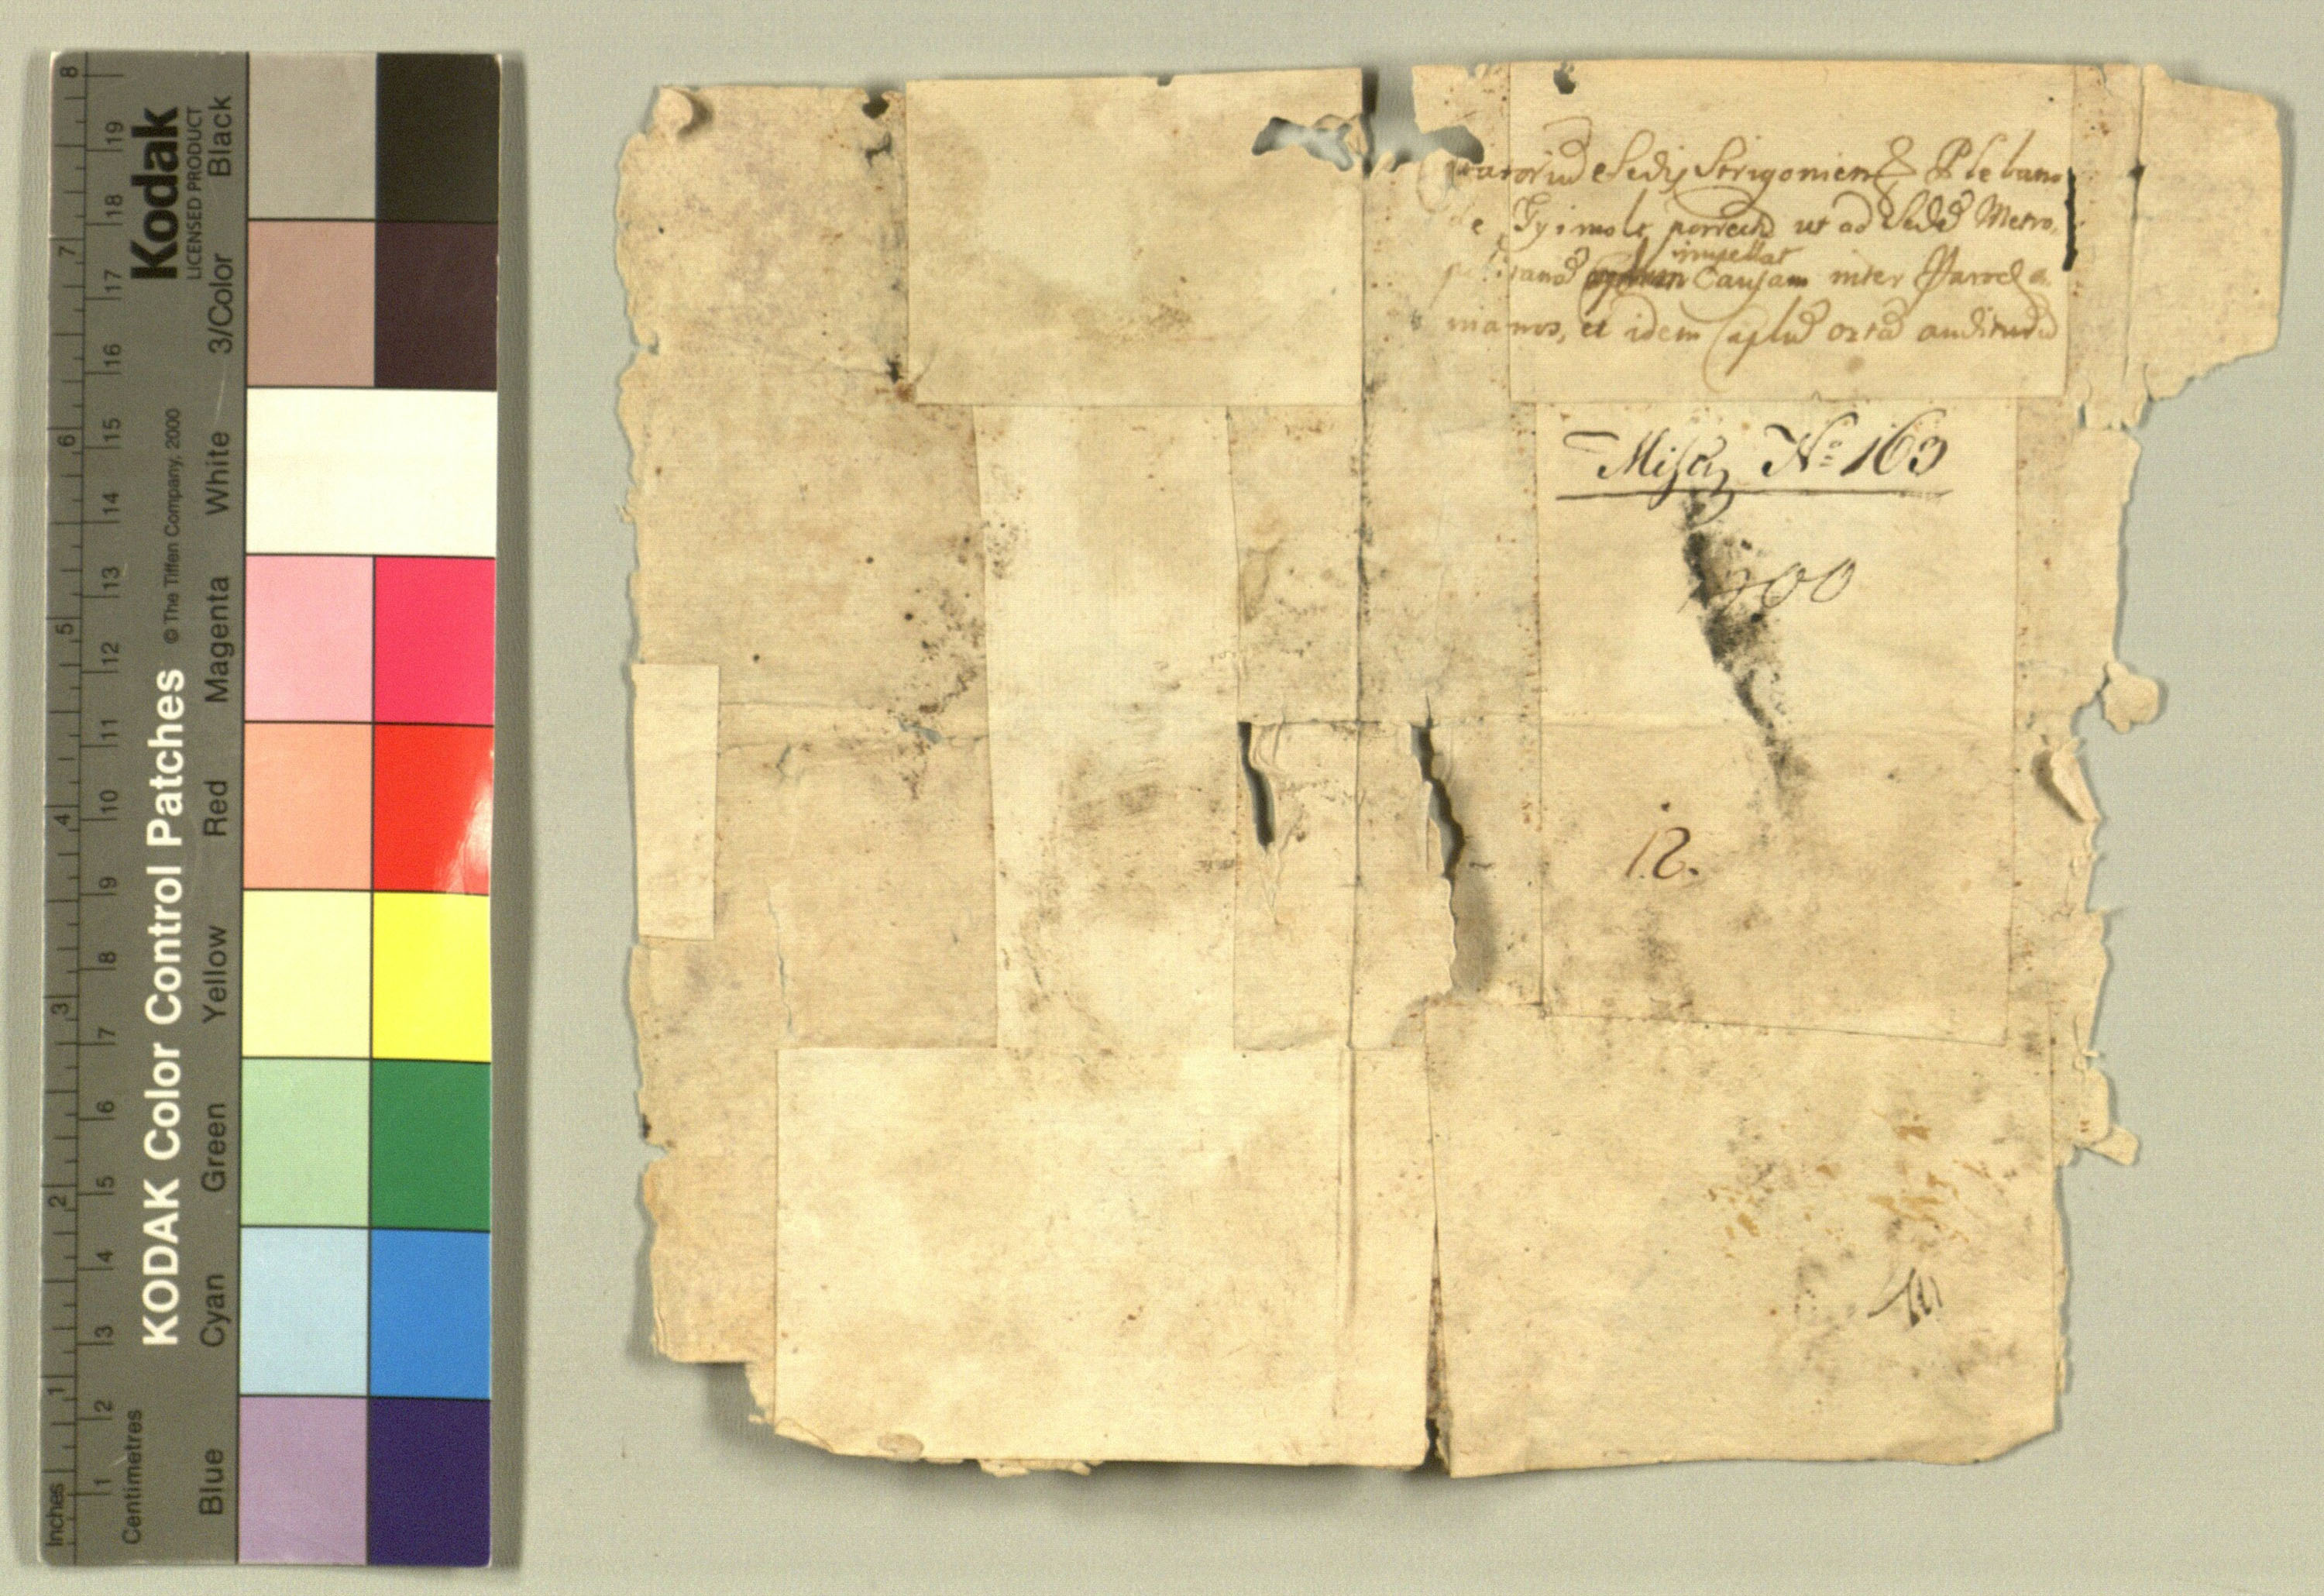 KODAK Color Control Patches
© The Tiffen Company, 2000
Kodak
LICENSED PRODUCT
Inches
1 2 3 4 5 6 7 8
Centimetres
1 2 3 4 5 6 7 8 9 10 11 12 13 14 15 16 17 18 19
Blue
Cyan
Green
Yellow
Red
Magenta
White
3/Color
Black
Sedis Strigonien Plebano
de ut ad Sedē Metro
impellat
Causam inter Paroch
nianos, et idem Caplū ortā
Misc. No 163
12.